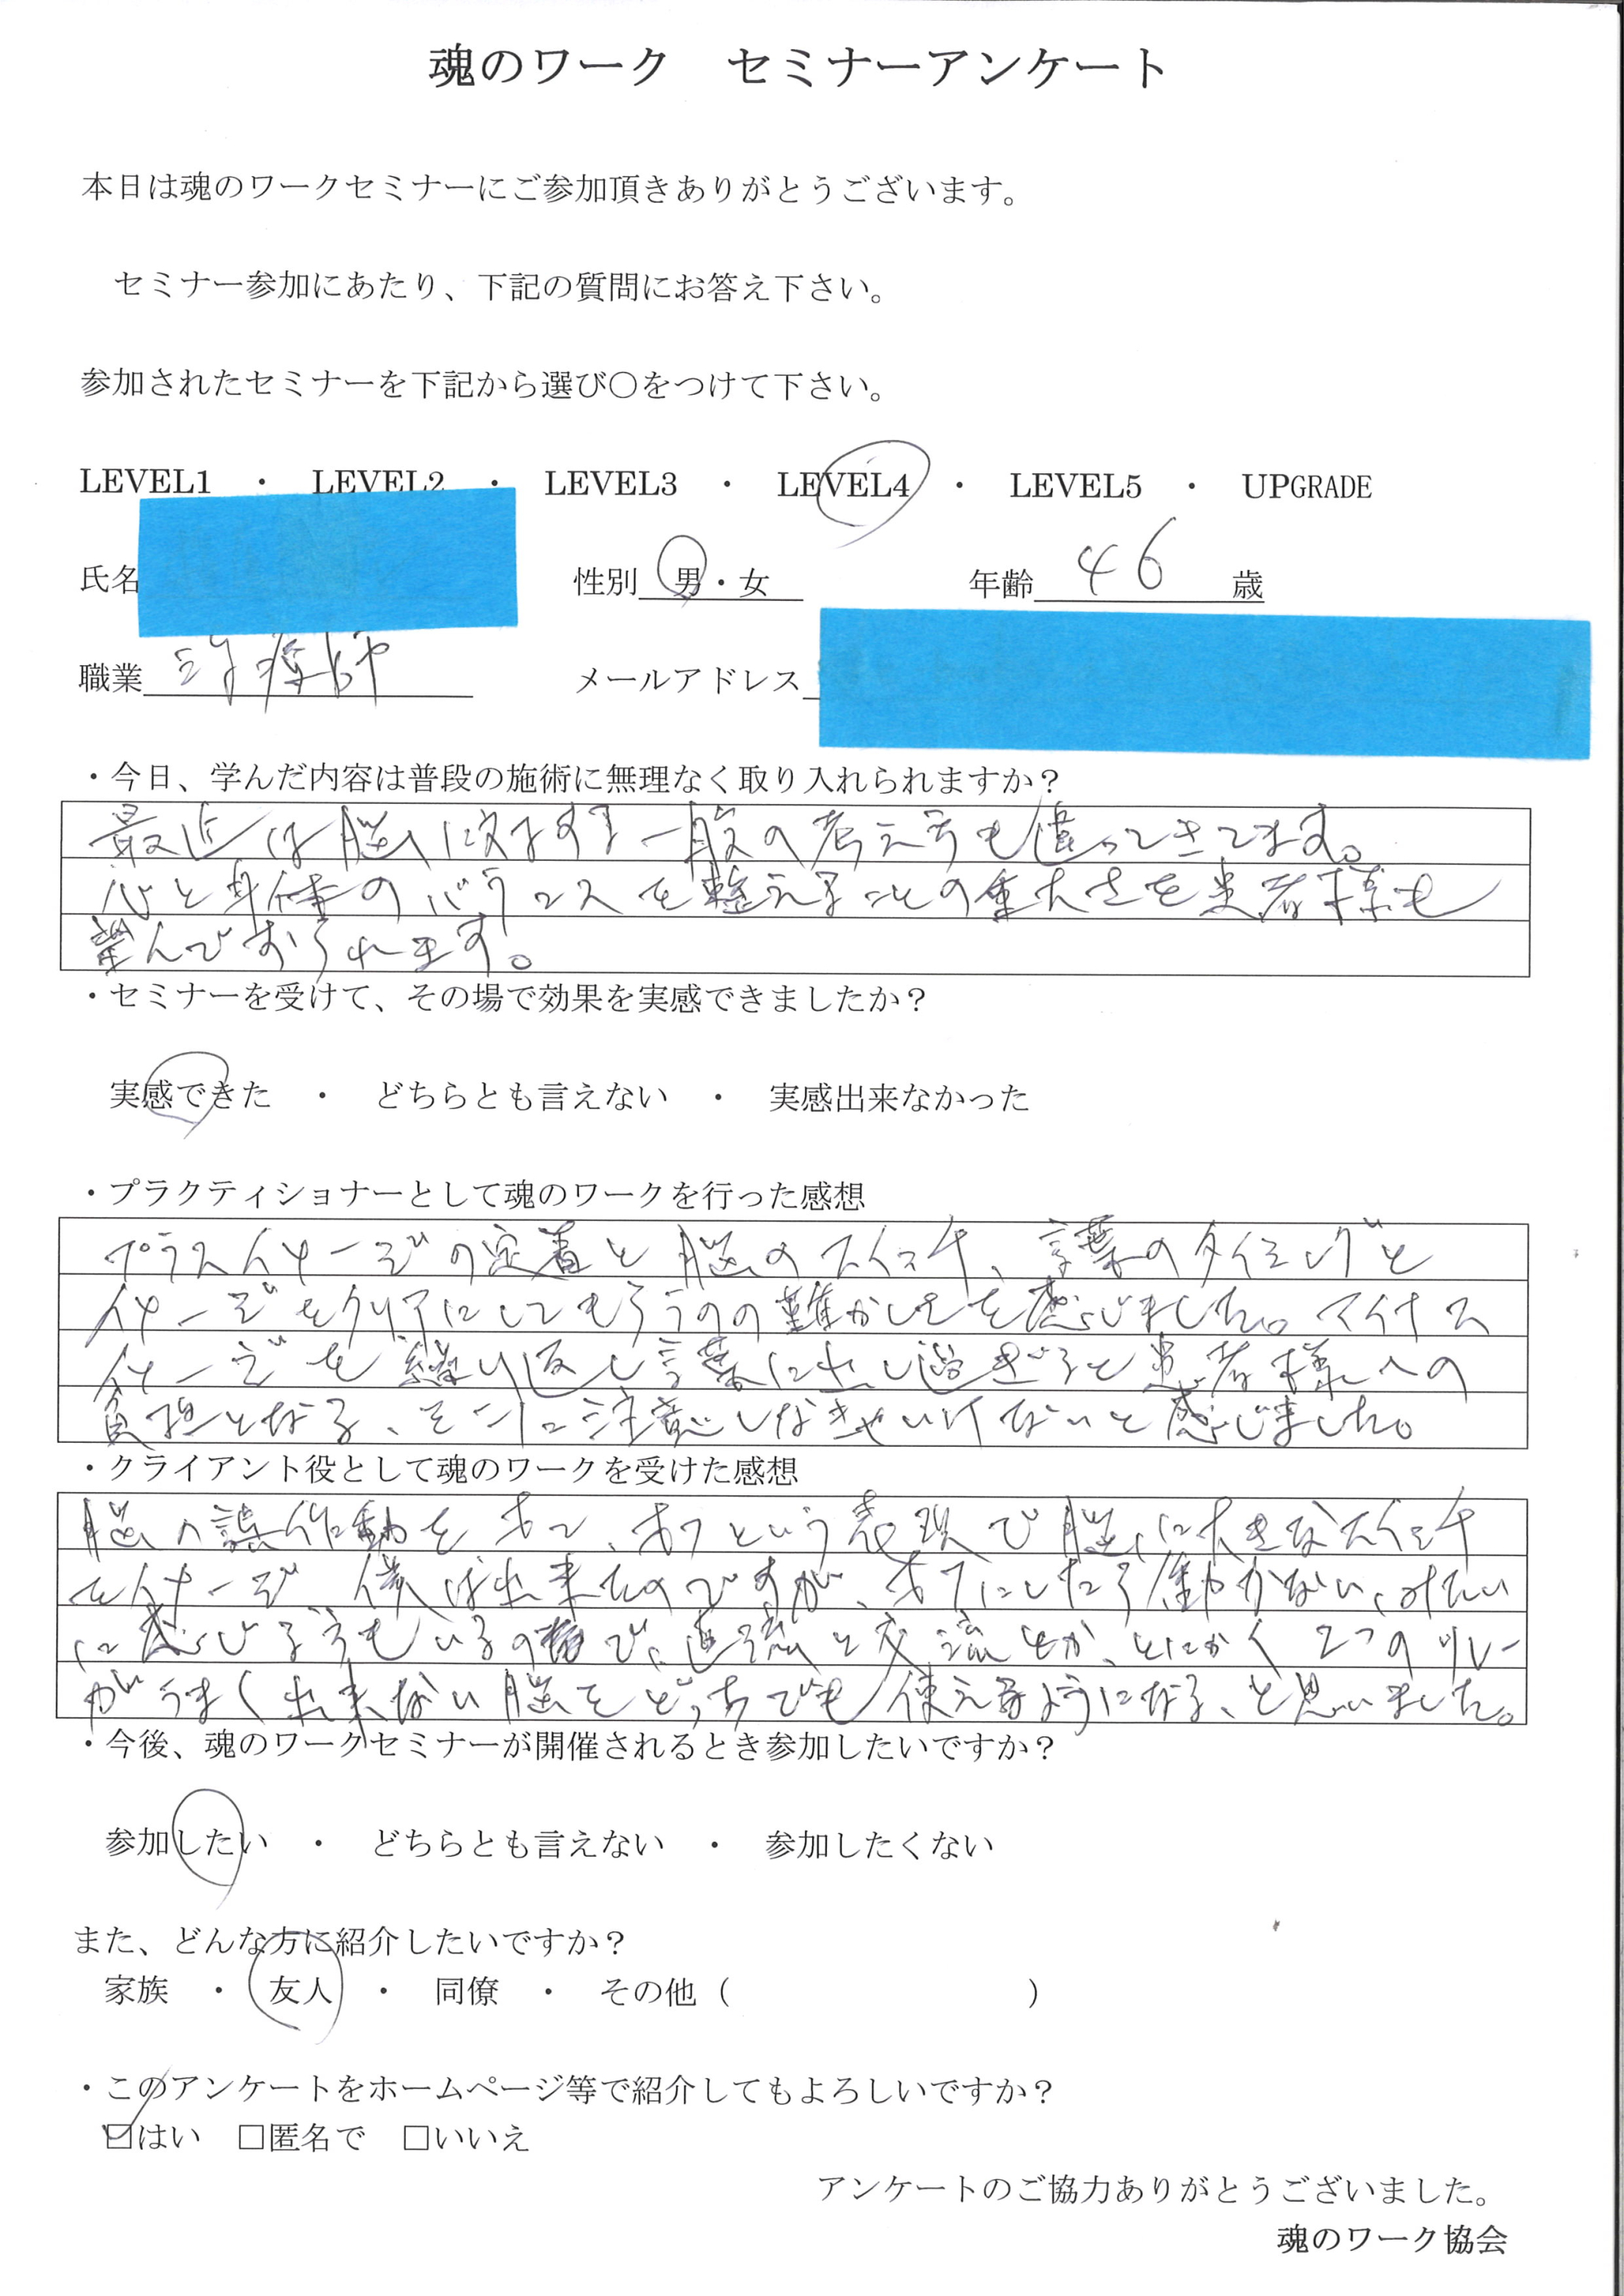 魂のワーク　セミナーアンケート
本日は魂のワークセミナーにご参加頂きありがとうございます。
セミナー参加にあたり、下記の質問にお答え下さい。
参加されたセミナーを下記から選び〇をつけて下さい。
LEVEL1　・　LEVEL2　・　LEVEL3　・　LEVEL4　・　LEVEL5　・　UPGRADE
氏名　性別　男・女　年齢 46 歳
職業 治療師　メールアドレス
・今日、学んだ内容は普段の施術に無理なく取り入れられますか？
最近は脳に対する一般の考え方も違ってきてます。
心と身体のバランスを整えることの重大さを患者様も
望んでおられます。
・セミナーを受けて、その場で効果を実感できましたか？
実感できた　・　どちらとも言えない　・　実感出来なかった
・プラクティショナーとして魂のワークを行った感想
プラスイメージの定着と脳のスイッチ、言葉のタイミングと
イメージをクリアにしてもらうのの難かしさを感じました。マイナス
イメージを繰り返し言葉に出し過ぎると患者様への
負担となる、そこに注意しなきゃいけないと感じました。
・クライアント役として魂のワークを受けた感想
脳の誤作動をオン、オフという表現で脳に大きなスイッチ
をイメージ 僕は出来たのですが、オフにしたら働かない、みたい
に感じる方もいるので、直流と交流とか、とにかく2つのリレー
がうまく出来ない脳をどっちでも使えるようになる、と思いました。
・今後、魂のワークセミナーが開催されるとき参加したいですか？
参加したい　・　どちらとも言えない　・　参加したくない
また、どんな方に紹介したいですか？
家族　・　友人　・　同僚　・　その他（　　　　　　　　　）
・このアンケートをホームページ等で紹介してもよろしいですか？
☑はい　□匿名で　□いいえ
アンケートのご協力ありがとうございました。
魂のワーク協会